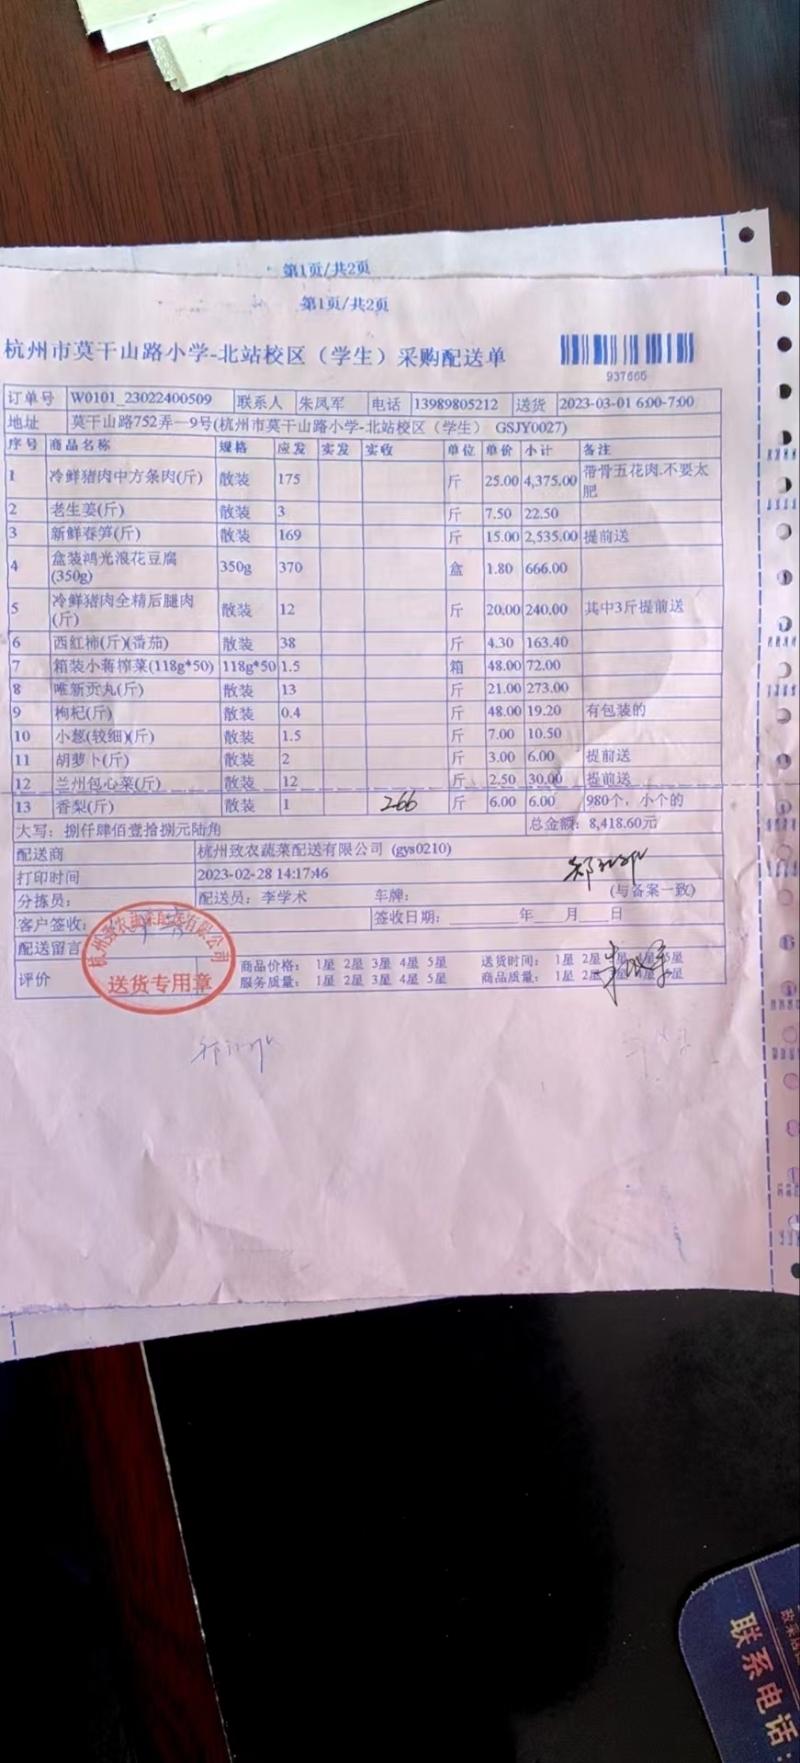 第1页/共2页
第1页/共2页
杭州市莫干山路小学-北站校区（学生）采购配送单
937665
订单号 W0101_23022400509 联系人 朱凤军 电话 13989805212 送货 2023-03-01 6:00-7:00
地址 莫干山路752弄一9号(杭州市莫干山路小学-北站校区（学生） GSJY0027)
序号 商品名称 规格 应发 实发 实收 单位 单价 小计 备注
1 冷鲜猪肉中方条肉(斤) 散装 175 斤 25.00 4,375.00 带骨五花肉.不要太
肥
2 老生姜(斤) 散装 3 斤 7.50 22.50
3 新鲜春笋(斤) 散装 169 斤 15.00 2,535.00 提前送
4 盒装鸿光浪花豆腐
(350g) 350g 370 盒 1.80 666.00
5 冷鲜猪肉全精后腿肉
(斤) 散装 12 斤 20.00 240.00 其中3斤提前送
6 西红柿(斤)(番茄) 散装 38 斤 4.30 163.40
7 箱装小蒋榨菜(118g*50) 118g*50 1.5 箱 48.00 72.00
8 唯新贡丸(斤) 散装 13 斤 21.00 273.00
9 枸杞(斤) 散装 0.4 斤 48.00 19.20 有包装的
10 小葱(较细)(斤) 散装 1.5 斤 7.00 10.50
11 胡萝卜(斤) 散装 2 斤 3.00 6.00 提前送
12 兰州包心菜(斤) 散装 12 斤 2.50 30.00 提前送
13 香梨(斤) 散装 1 266 斤 6.00 6.00 980个，小个的
大写：捌仟肆佰壹拾捌元陆角 总金额：8,418.60元
配送商 杭州致农蔬菜配送有限公司 (gys0210)
打印时间 2023-02-28 14:17:46
分拣员： 配送员：李学术 车牌： (与备案一致)
客户签收： 签收日期： 年 月 日
配送留言
评价 商品价格： 1星 2星 3星 4星 5星 送货时间： 1星 2星 3星 4星 5星
服务质量： 1星 2星 3星 4星 5星 商品质量： 1星 2星 3星 4星 5星
杭州致农蔬菜配送有限公司
送货专用章
联系电话：